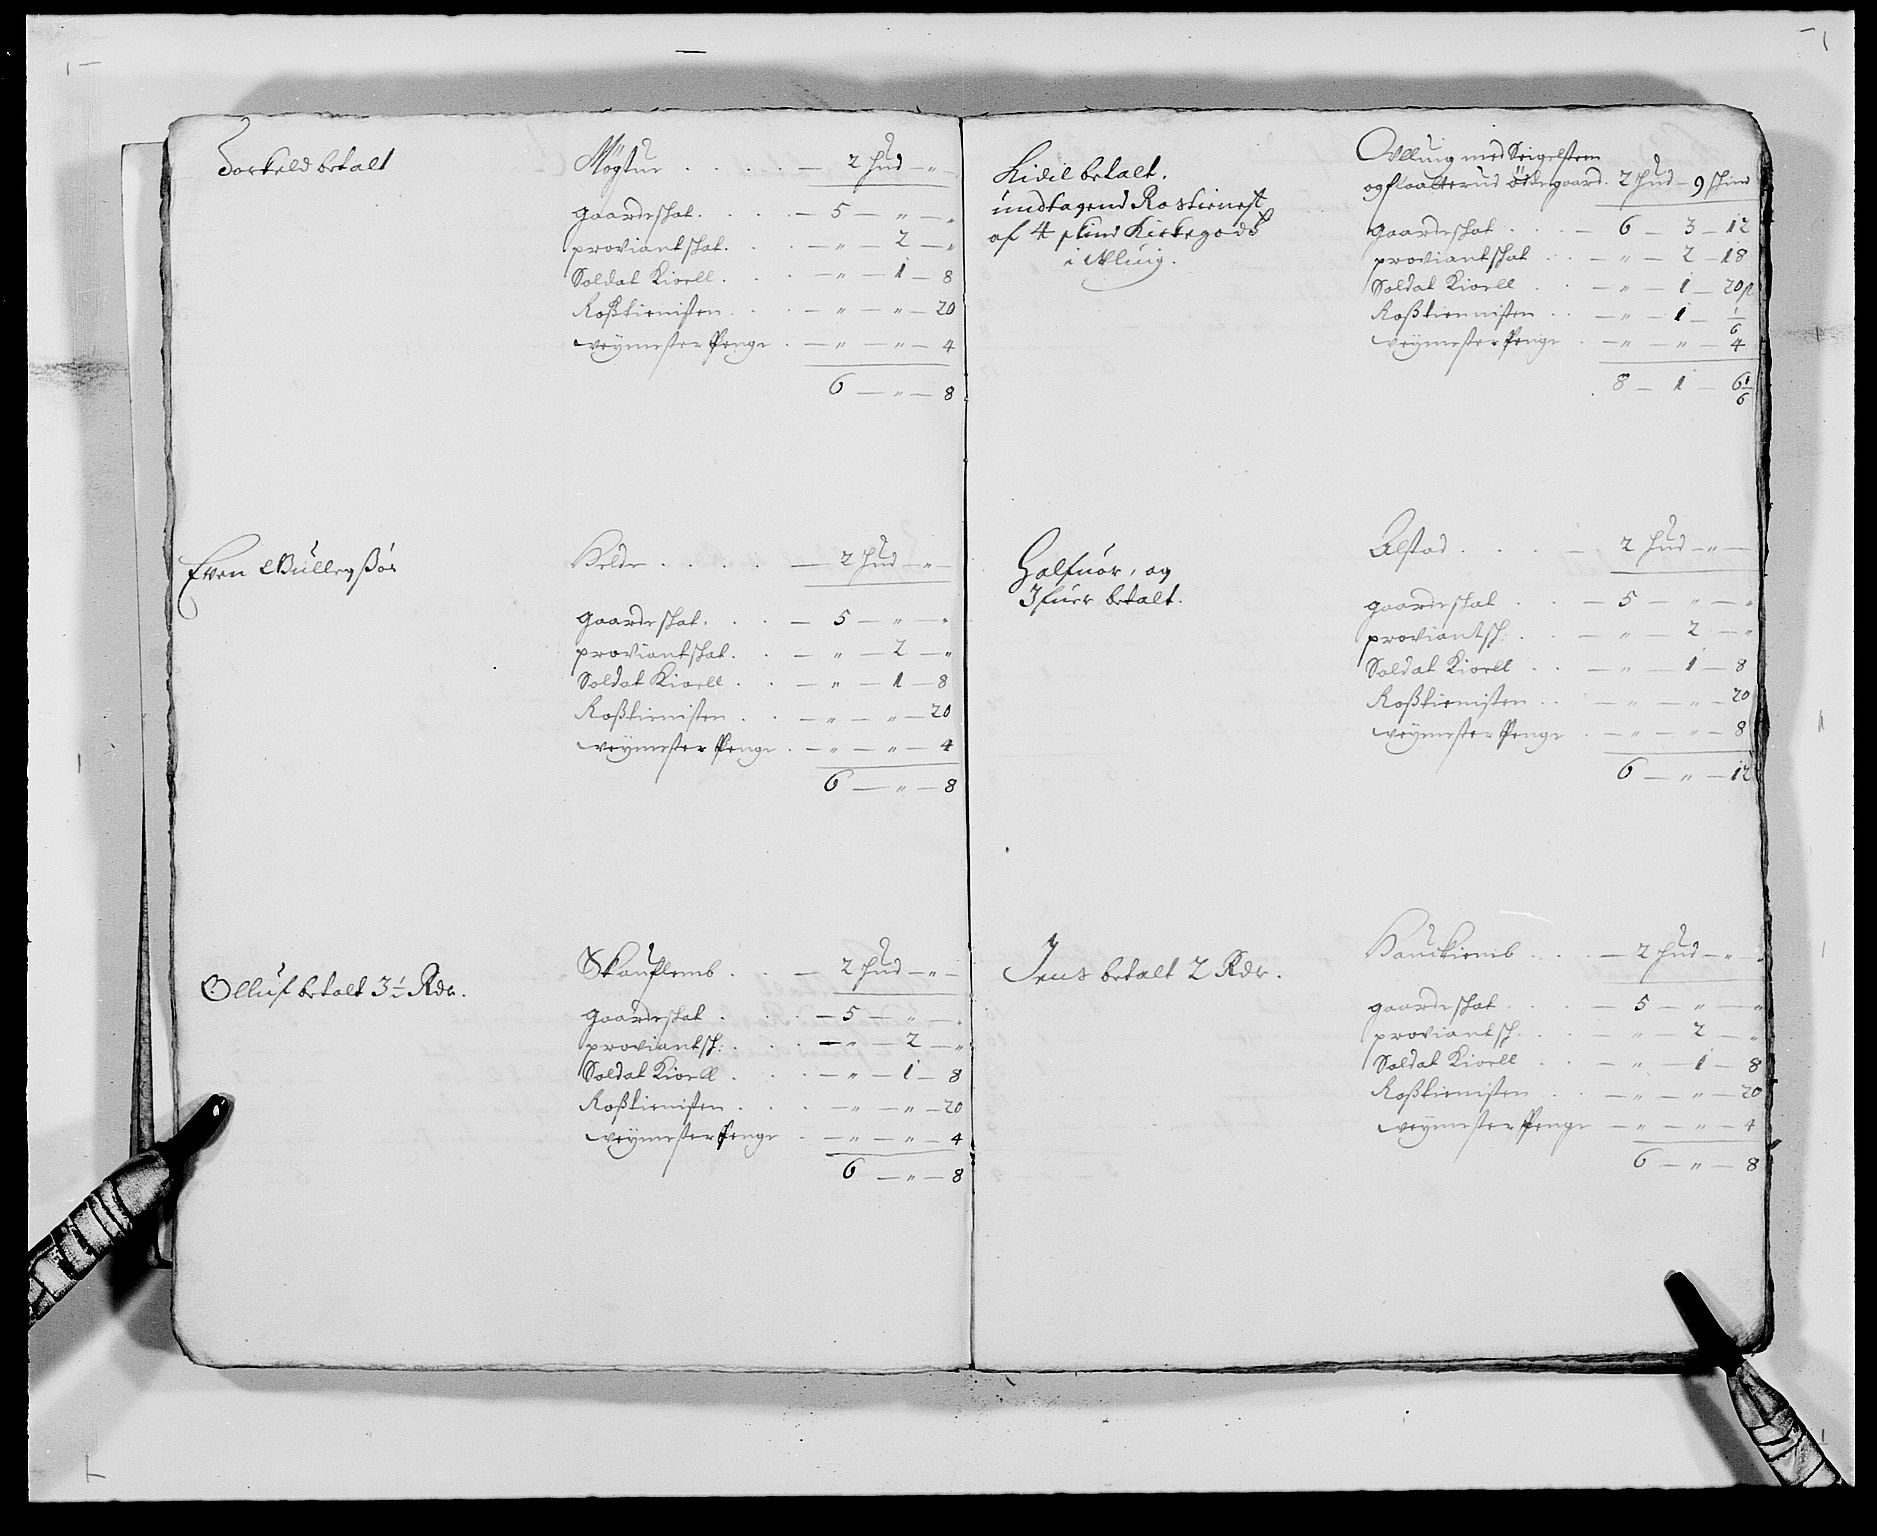 Torkeld betalt
Møgtue . . . . — 2 hud — „ —
gaardeskat. . . . — 5 — „ — „
proviantskat. . . . — „ — 2 — „
Soldat Kioell . . . — „ — 1 — 8
Roßtienisten . . . — „ — „ — 20
veÿmester Penge . — „ — „ — 4
6 — „ — 8
Even
Helde . . . . . — 2 hud — „ —
gaardeskat. . . . — 5 — „ — „
proviantskat. . . — „ — 2 — „
Soldat Kioell . . — „ — 1 — 8
Roßtienisten . . — „ — „ — 20
veÿmester Penge . — „ — „ — 4
6 — „ — 8
Olluf betalt 3½ Rdr.
Skouflemb . . . — 2 hud — „ —
gaardeskat . . . . — 5 — „ — „
proviantsk: . . . — „ — 2 — „
Soldat Kioell . . . — „ — 1 — 8
Roßtienisten . . . — „ — „ — 20
veÿmester Penge . — „ — „ — 4
6 — „ — 8
Kidil betalt.
undtagend Rostienest
af 4 skind Kirkegods
i
Øllung med Seigelsteen
og floatterud ödegaard. 2 hud — 9 skind
gaardeskat . . . — 6 — 3 — 12
proviantskat . . — „ — 2 — 18
Soldat Kioell . . — „ — 1 — 20
Roßtiennisten . . — „ — 1 — 1/6
veÿmester Penge . — „ — „ — 4
8 — 1 — 6 1/6
Halfuor, og
Ifuer betalt.
Alstad . . . . — 2 hud — „ —
gaardeskat . . . — 5 — „ — „
proviantsk: . . — „ — 2 — „
Soldat Kioell . . — „ — 1 — 8
Roßtienisten . . — „ — „ — 20
veÿmester Penge . — „ — „ — 8
6 — „ — 12
Jens betalt 2 Rdr.
. . . — 2 hud — „ —
gaardeskat . . . — 5 — „ — „
proviantsk: . . — „ — 2 — „
Soldat Kioell . . — „ — 1 — 8
Roßtienisten . . — „ — „ — 20
veÿmester Penge — „ — „ — 4
6 — „ — 8